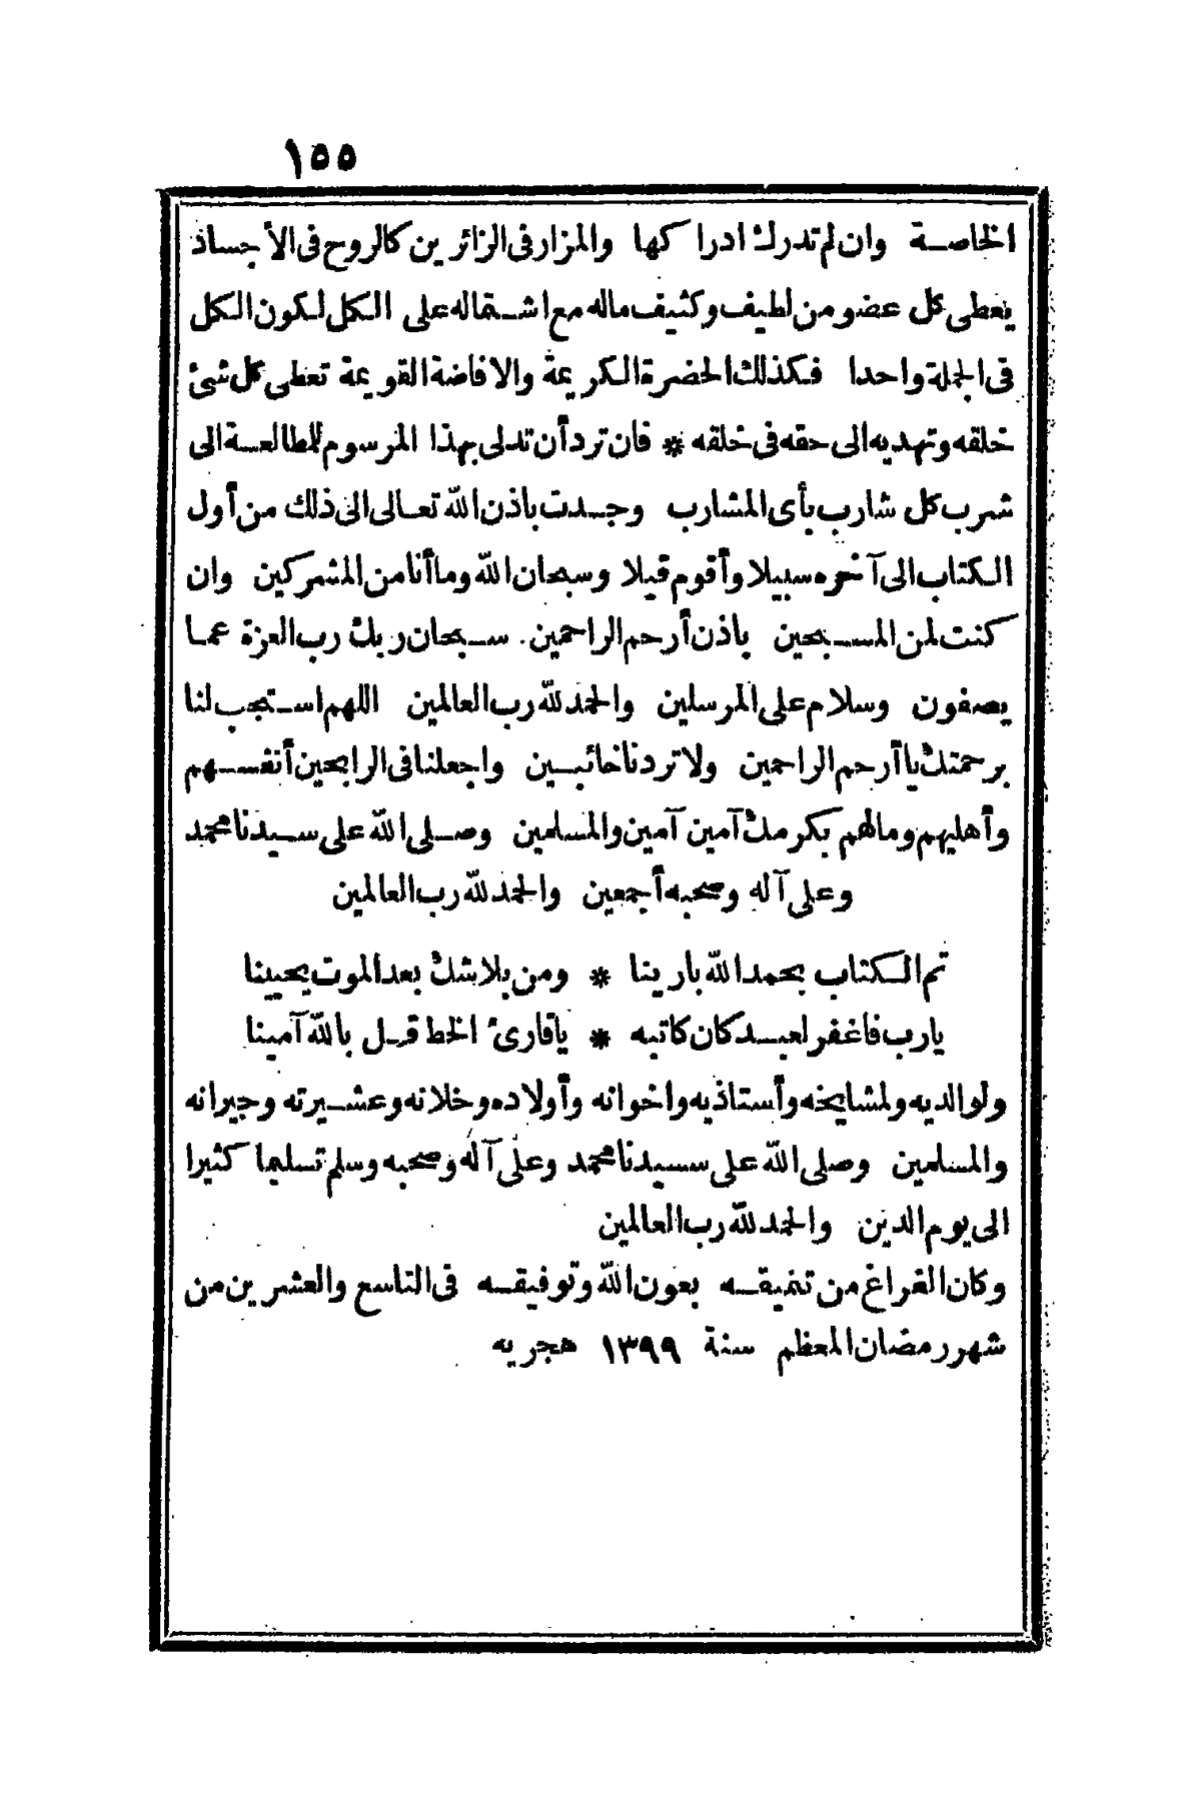 ١٥٥
الخاصة وان لم تدرك ادراكها والمزار فى الزائرين كالروح فى الأجساد
يعطى كل عضو من لطيف وكثيف ماله مع اشتماله على الكل لكون الكل
فى الجملة واحدا فكذلك الحضرة الكريمة والافاضة القويمة تعطى كل شئ
خلقه وتهديه الى حقه فى خلقه * فان ترد أن تدلى بهذا المرسوم للمطالعة الى
شرب كل شارب بأى المشارب وجدت باذن الله تعالى الى ذلك من أول
الكتاب الى آخره سبيلا وأقوم قيلا وسبحان الله وما أنا من المشركين وان
كنت لمن المسبحين باذن أرحم الراحمين. سبحان ربك رب العزة عما
يصفون وسلام على المرسلين والحمد لله رب العالمين اللهم استجب لنا
برحمتك يا أرحم الراحمين ولا تردنا خائبين واجعلنا فى الرابحين أنفسهم
وأهليهم ومالهم بكرمك آمين آمين والمسلمين وصلى الله على سيدنا محمد
وعلى آله وصحبه أجمعين والحمد لله رب العالمين
تم الكتاب بحمد الله بارينا * ومن بلا شك بعد الموت يحيينا
يارب فاغفر لعبد كان كاتبه * يا قارئ الخط قل بالله آمينا
ولوالديه ولمشايخه وأستاذيه واخوانه وأولاده وخلانه وعشيرته وجيرانه
والمسلمين وصلى الله على سيدنا محمد وعلى آله وصحبه وسلم تسليما كثيرا
الى يوم الدين والحمد لله رب العالمين
وكان الفراغ من تنميقه بعون الله وتوفيقه فى التاسع والعشرين من
شهر رمضان المعظم سنة ١٣٩٩ هجريه